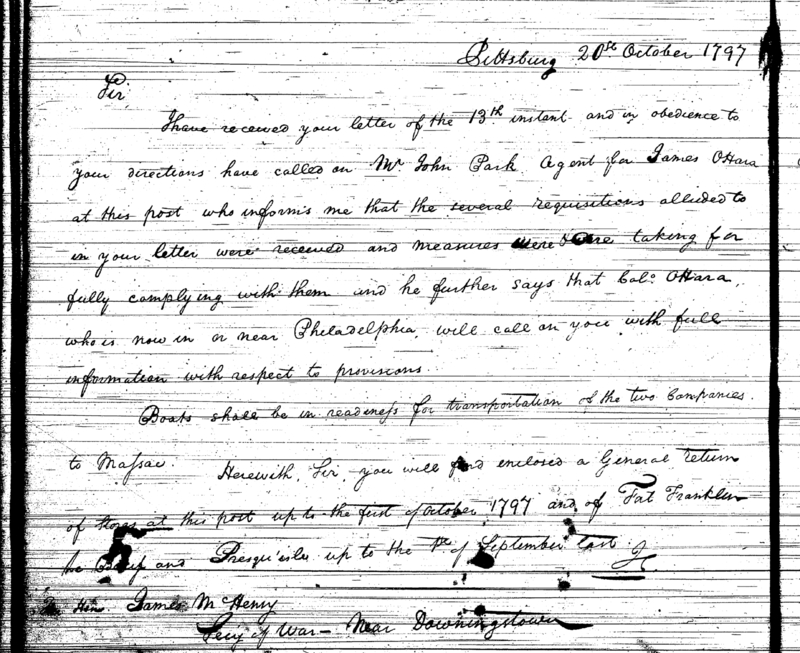 Pittsburg 20th October 1797
Sir
I have received your letter of the 13th instant and in obedience to
your directions have called on Mr John Park Agent for James OHara
at this post who informs me that the several requisitions alluded to
in your letter were received and measures were taking for
fully complying with them and he further says that Colo. OHara,
who is now in or near Philadelphia will call on you with full
information with respect to provisions
Boats shall be in readiness for transportation of the two Companies
to Massac. Herewith, Sir, you will find enclosed a General return
of stores at this post up to the first of October 1797 and of Fat Franklin
Le Beauf and Presqu'isle up to the 1st of September last
Hon James McHenry
Secy of War - Near Downingstown